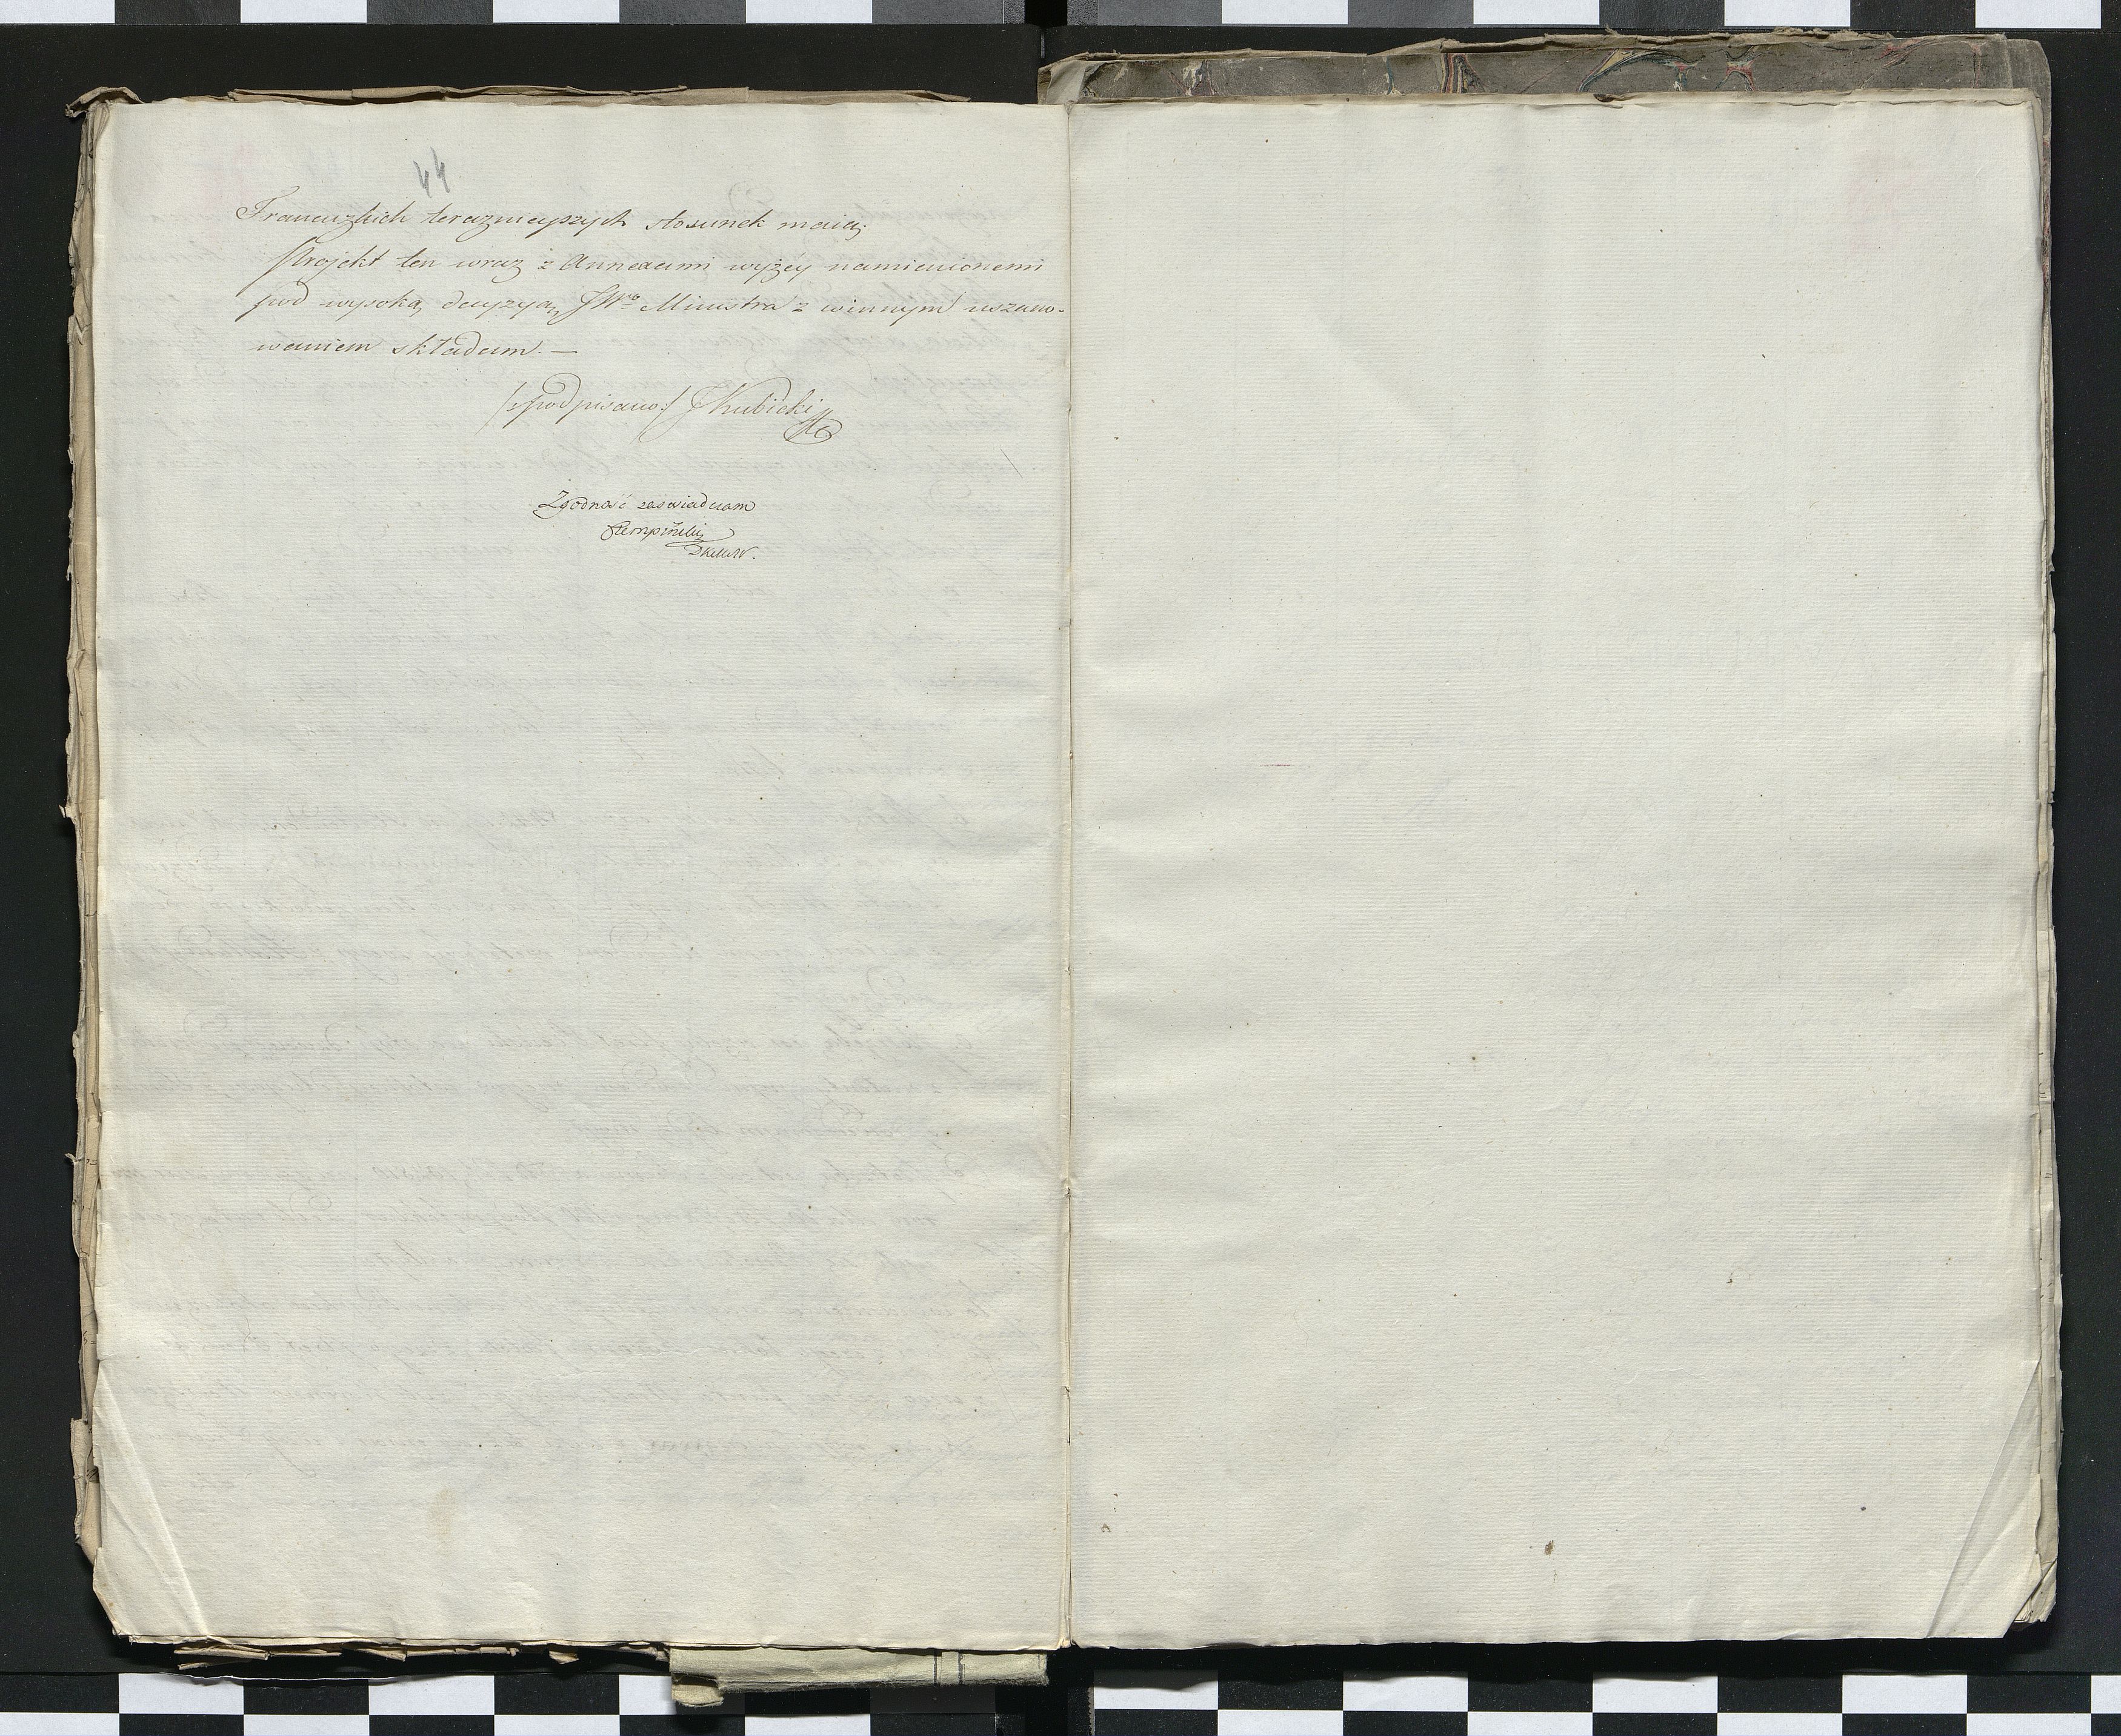 44
Francuzkich terazniejszych stosunek maią.
Projekt ten wraz z Annexami wyżéy namienionemi
pod wysoką decyzyą JWo Ministra z winnym uszano-
waniem składam. —
/:podpisano:/ JKubicki
Zgodność zaświadczam